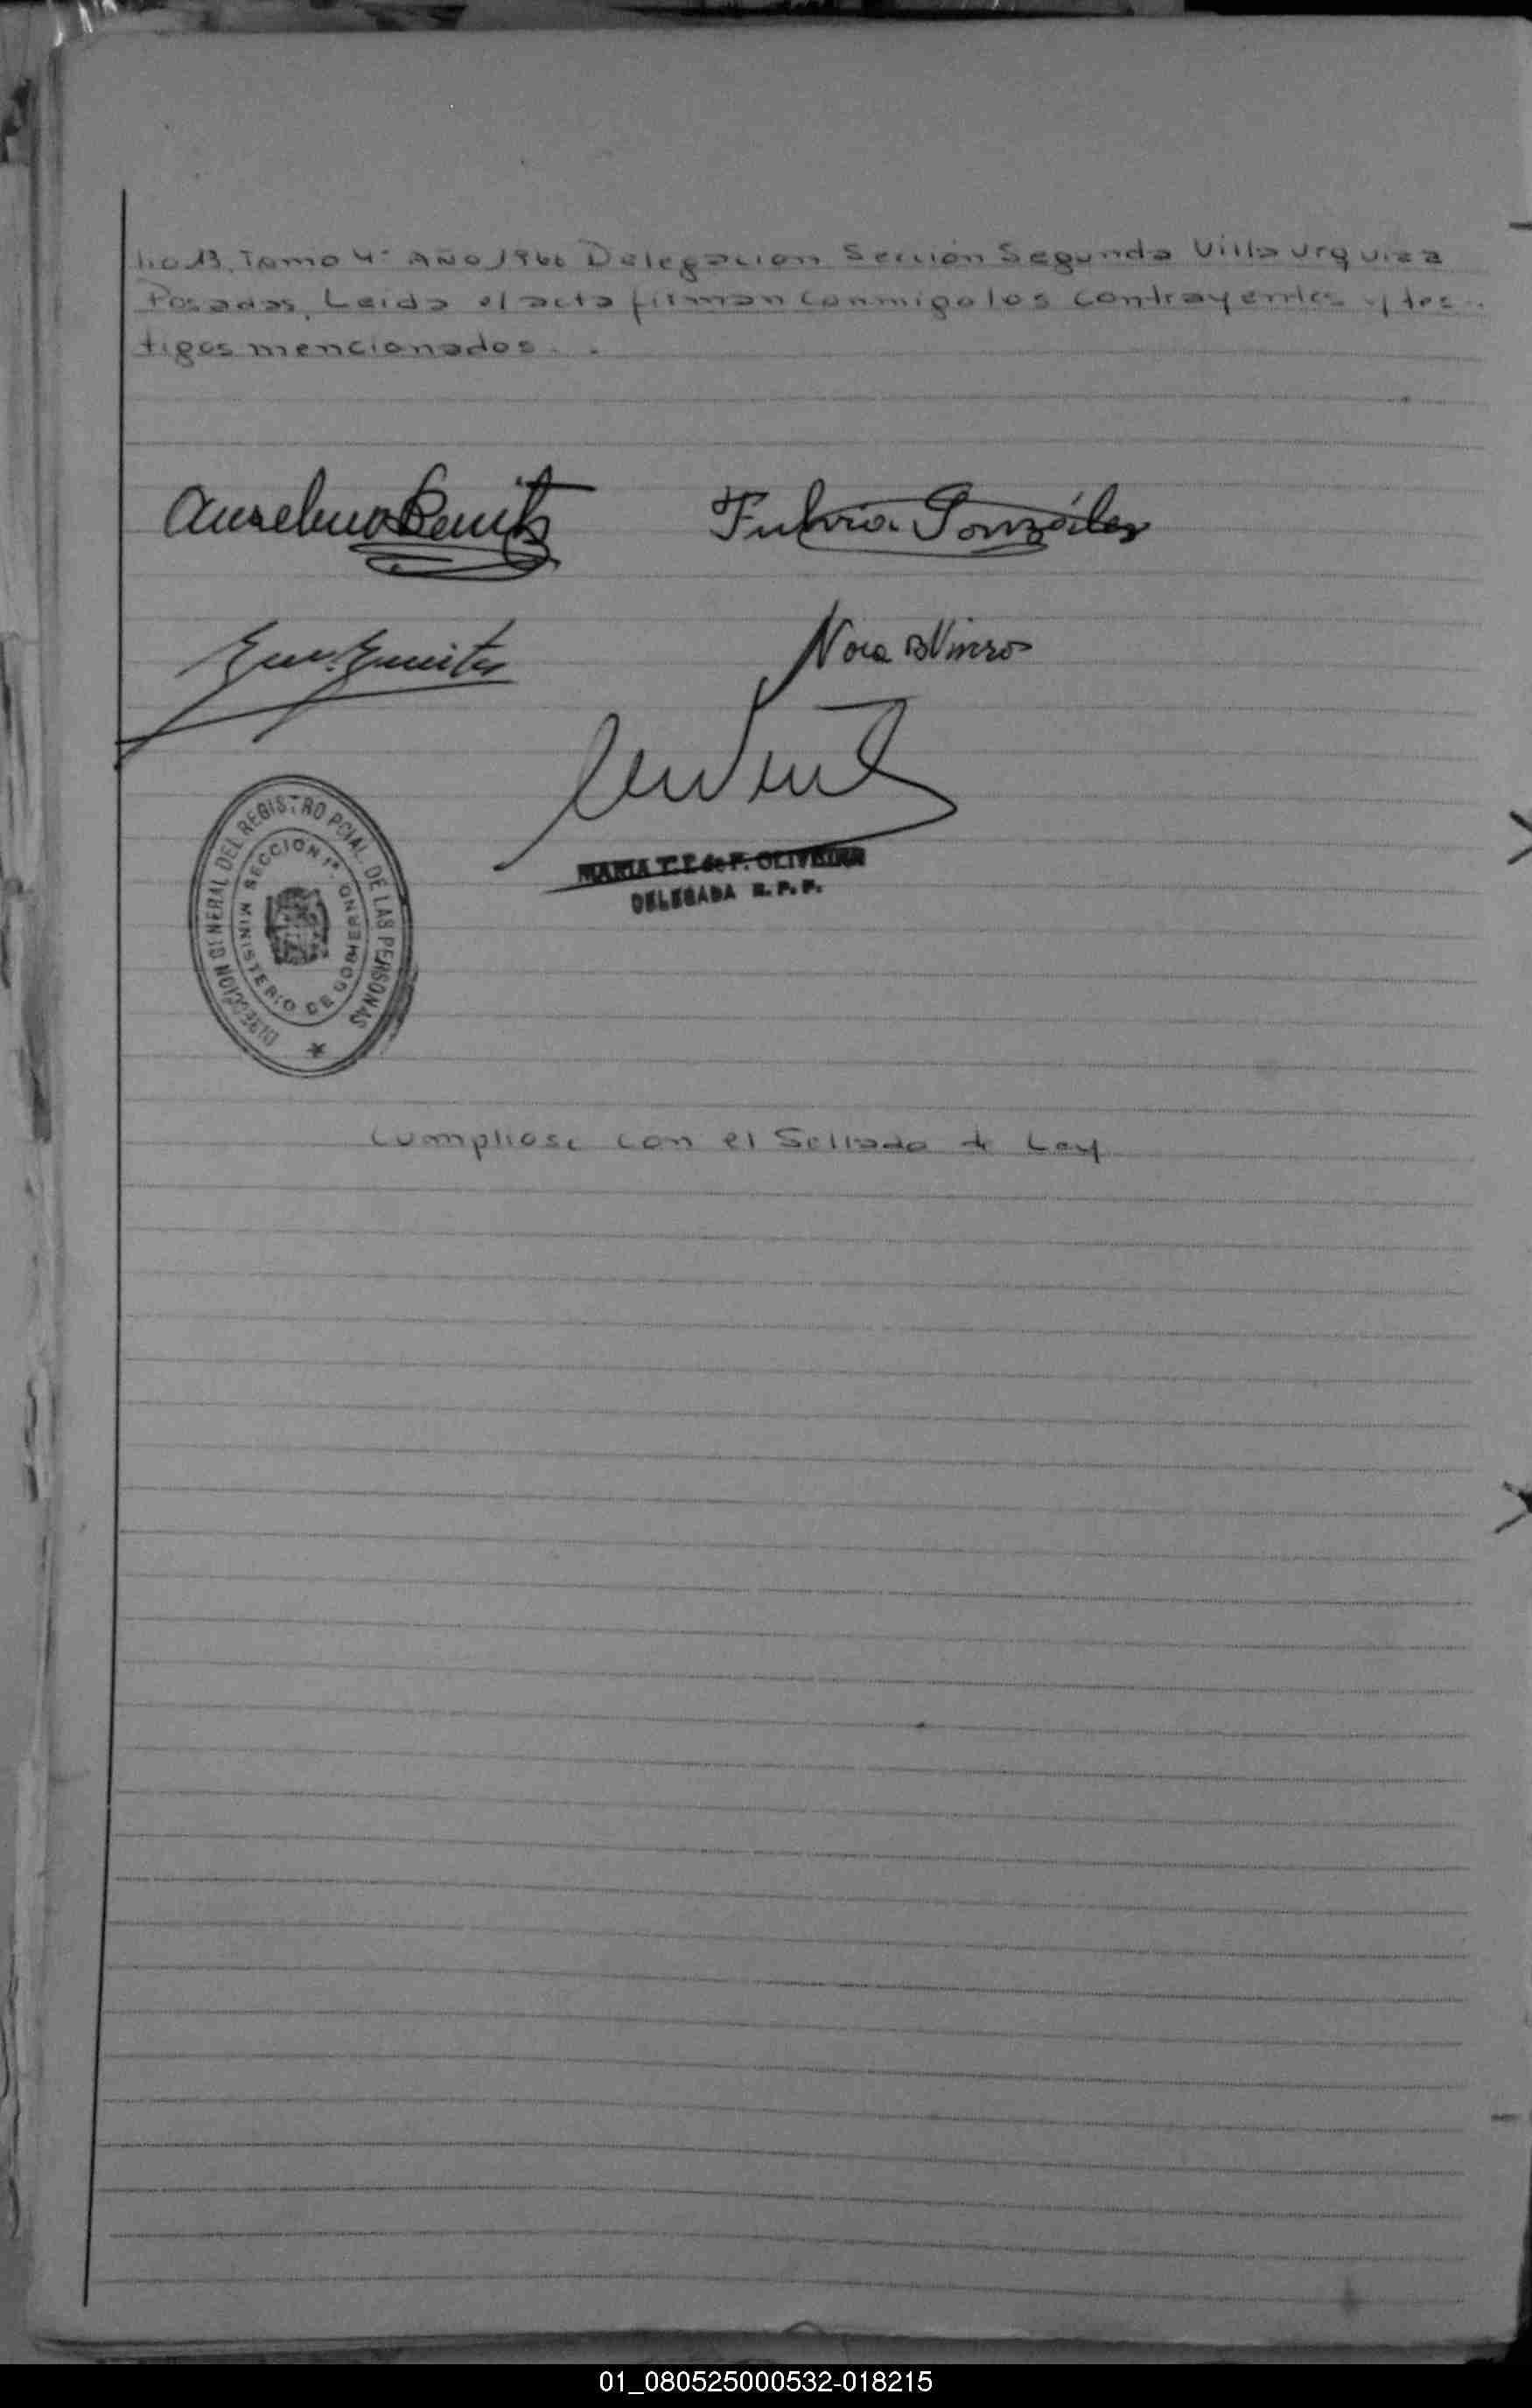 lio 13, Tomo 4º Año 1966 Delegacion Sección Segunda Villa Urquiza
Posadas, Leida el acta firman conmigo los contrayentes y tes-
tigos mencionados. .
Anselmo Benitz
Fulvia González
Nora
MARIA T. E. de F. OLIVEIRA
DELEGADA R. P. P.
DIRECCION GENERAL DEL REGISTRO PCIAL. DE LAS PERSONAS
MINISTERIO DE GOBIERNO
SECCION 1ª.
Cumpliose con el Sellado de Ley
01_080525000532-018215